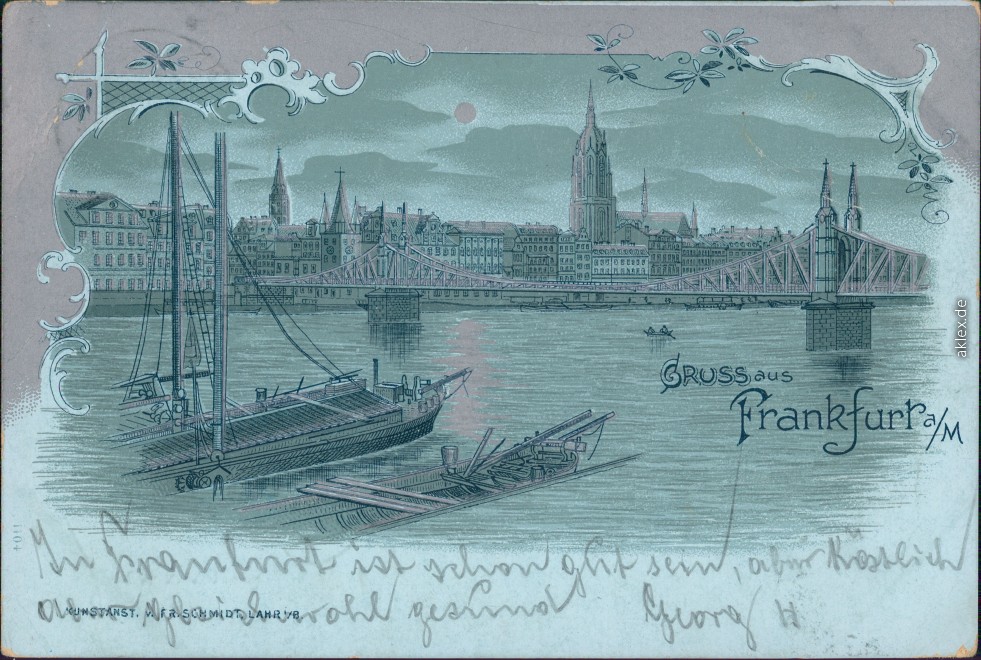 GRUSS aus
Frankfurt a/M
aklex.de
1104
In Franfurt ist schon gut sein, aber Köstlich
aber gleich wohl gesund Georg H
KUNSTANST. V. FR. SCHMIDT, LAHR I/B.